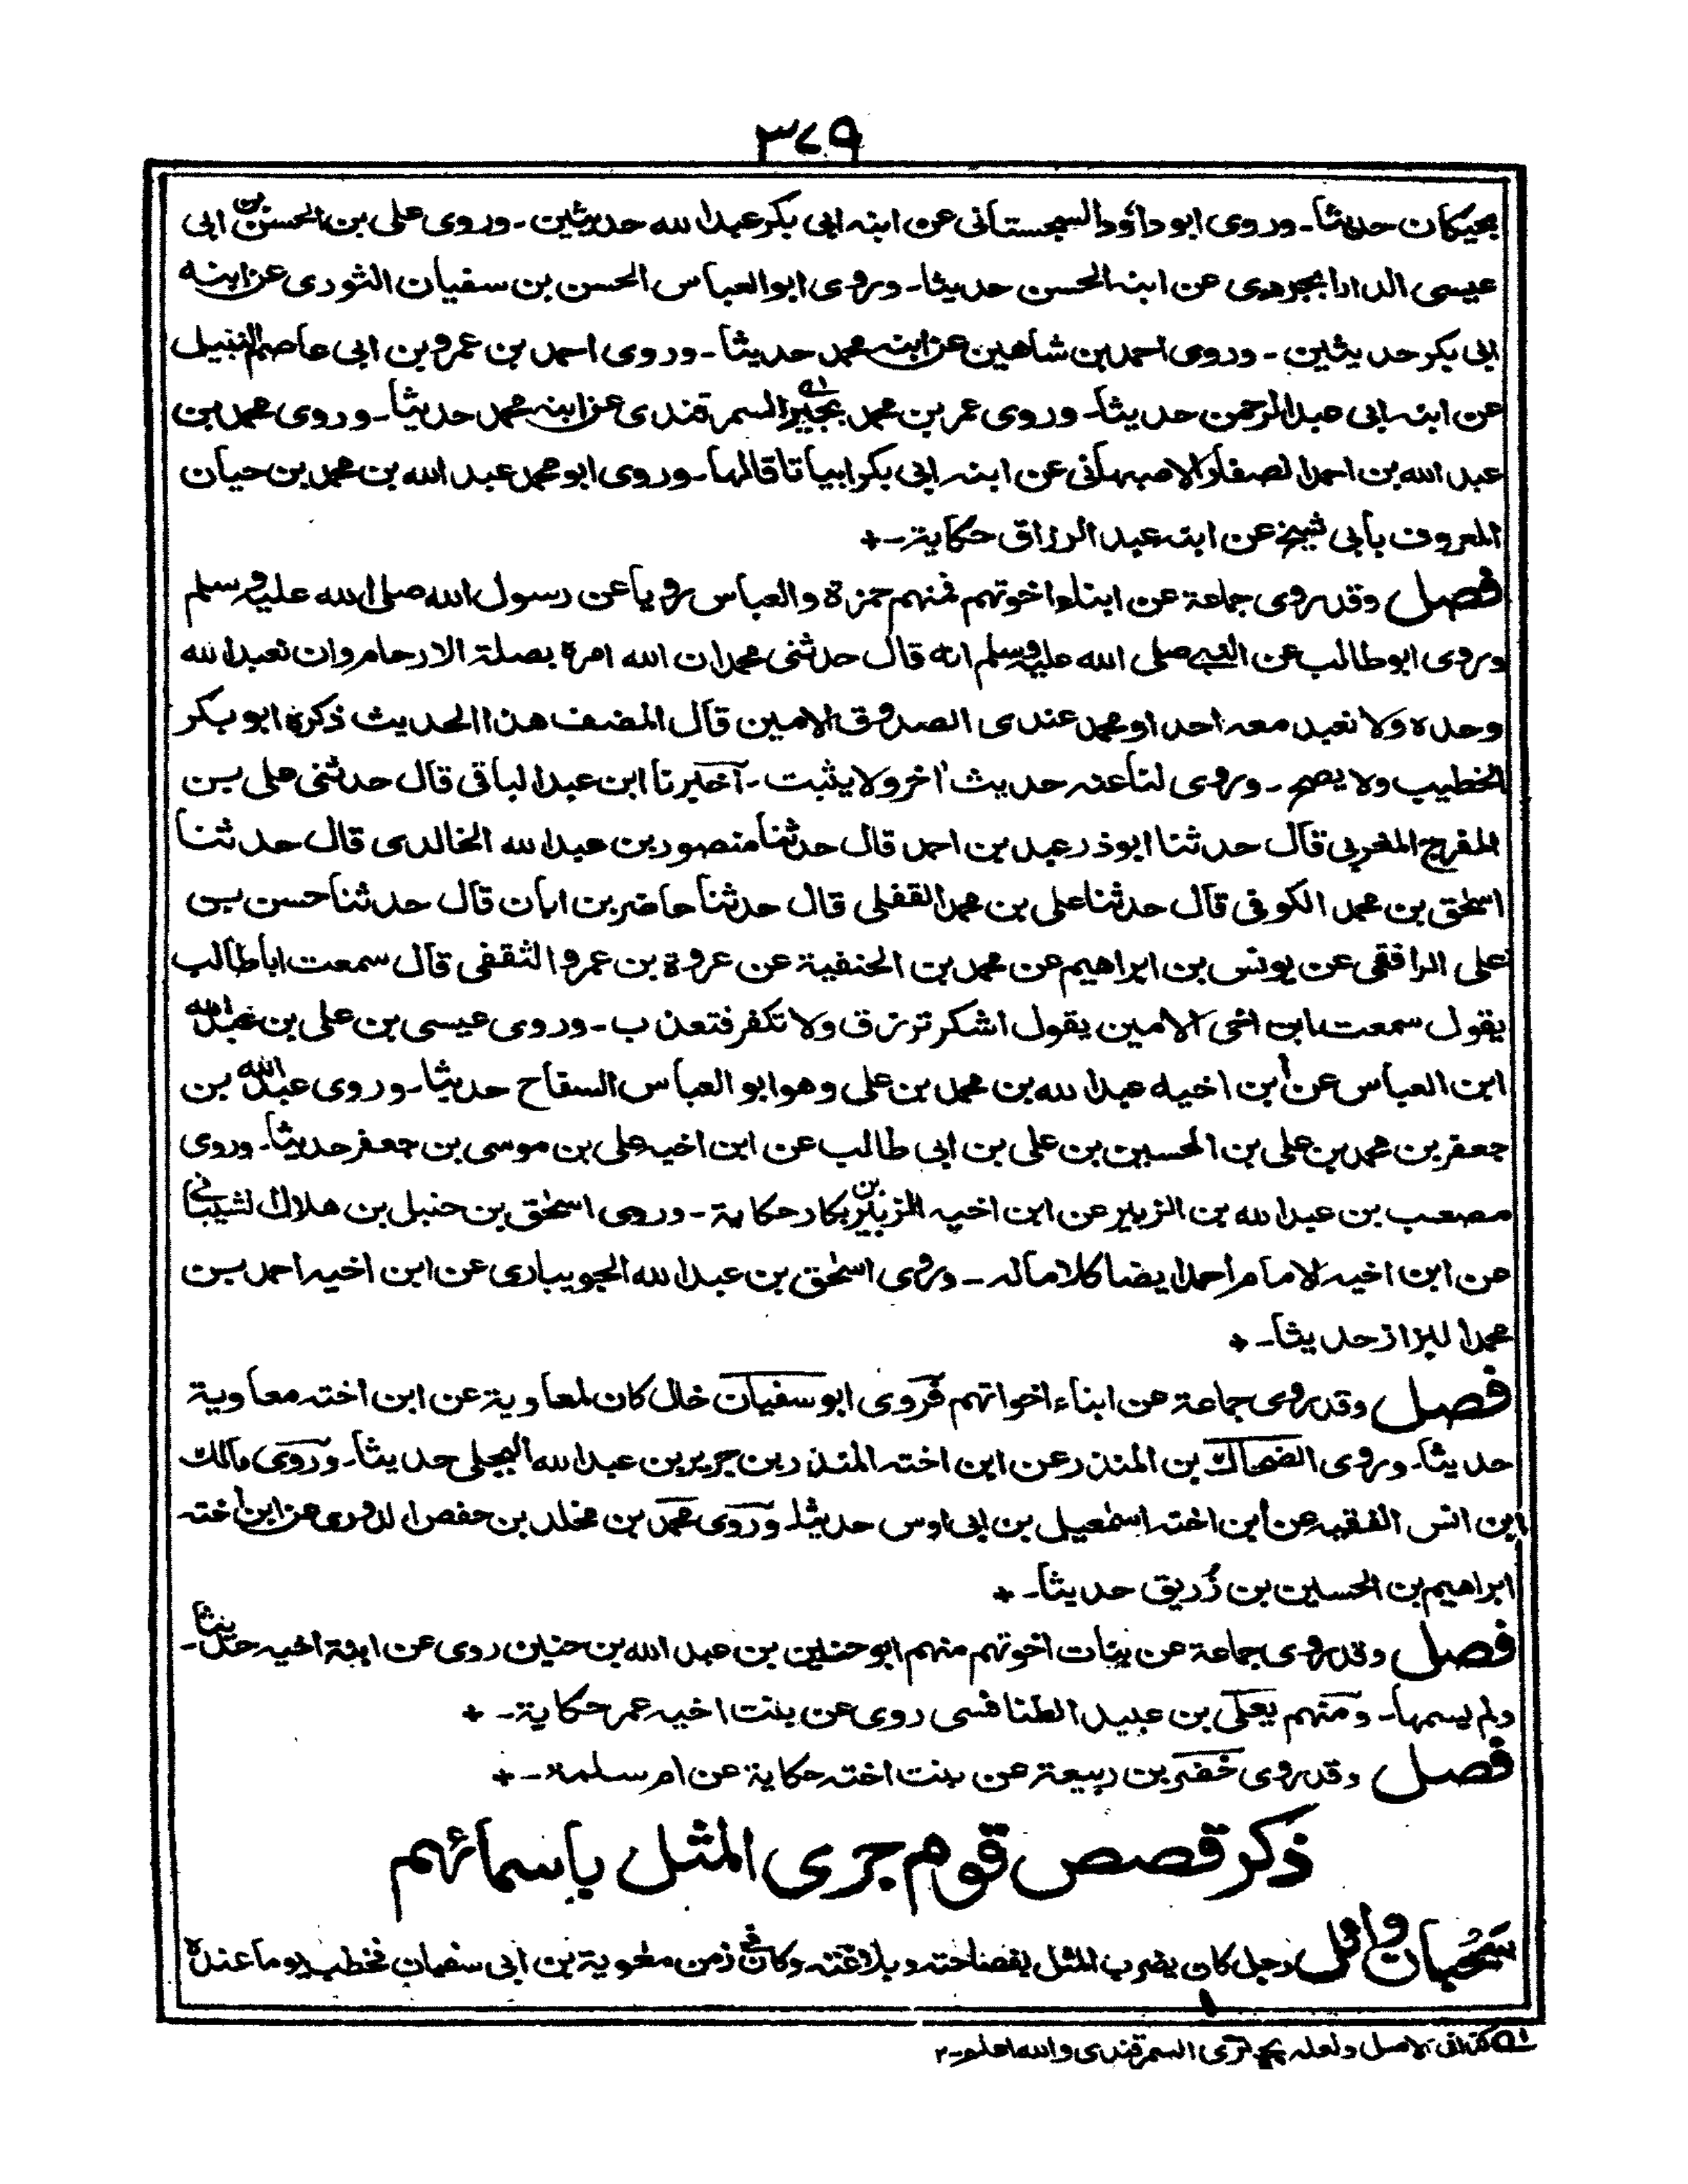 ٣٧٩
بحيكان حديثا۔ وروى ابو داؤد السجستانى عن ابنه ابى بكر عبد الله حديثين۔ وروى على بن الحسن بن ابى
عيسى الدارابجردى عن ابنه الحسن حديثا۔ وروى ابو العباس الحسن بن سفيان الثورى عن ابنه
ابى بكر حديثين۔ وروى احمد بن شاهين عن ابنه محمد حديثا۔ وروى احمد بن عمرو بن ابى عاصم النبيل
عن ابنه ابى عبد الرحمن حديثا۔ وروى عمر بن محمد بجير السمرقندى عن ابنه محمد حديثا۔ وروى محمد بن
عبد الله بن احمد الصفار الاصبهانى عن ابنه ابى بكر ابياتا قالها۔ وروى ابو محمد عبد الله بن محمد بن حيان
المعروف بابى شيخ عن ابنه عبد الرزاق حكاية۔+
فصل وقد روى جماعة عن ابناء اخوتهم فمنهم حمزة والعباس رويا عن رسول الله صلى الله عليه وسلم
وروى ابو طالب عن النبى صلى الله عليه وسلم انه قال حدثنى محمد ان الله امره بصلة الارحام وان نعبد الله
وحده ولا نعبد معه احدا ومحمد عندى الصدوق الامين قال المصنف هذا الحديث ذكره ابو بكر
الخطيب ولا يصح۔ وروى لنا عنه حديث اخر ولا يثبت۔ آخبرنا ابن عبد الباقى قال حدثنى على بن
المفرج المغربى قال حدثنا ابوذر عبد بن احمد قال حدثنا منصور بن عبد الله الخالدى قال حدثنا
اسحٰق بن محمد الكوفى قال حدثنا على بن محمد القفلى قال حدثنا حاضر بن ابان قال حدثنا حسن بن
على الرافقى عن يونس بن ابراهيم عن محمد بن الحنفية عن عروة بن عمرو الثقفى قال سمعت ابا طالب
يقول سمعت ابن اخى الامين يقول اشكر ترزق ولا تكفر فتعذب۔ وروى عيسى بن على بن عبد الله
ابن العباس عن ابن اخيه عبد الله بن محمد بن على وهو ابو العباس السفاح حديثا۔ وروى عبد الله بن
جعفر بن محمد بن على بن الحسين بن على بن ابى طالب عن ابن اخيه على بن موسى بن جعفر حديثا۔ وروى
مصعب بن عبد الله بن الزبير عن ابن اخيه الزبير بن بكار حكاية۔ وروى اسحٰق بن حنبل بن هلال الشيبانى
عن ابن اخيه الامام احمد ايضا كلاما له۔ وروى اسحٰق بن عبد الله الجويبارى عن ابن اخيه احمد بن
محمد البزاز حديثا۔+
فصل وقد روى جماعة عن ابناء اخواتهم فروى ابو سفيان خال كان لمعاوية عن ابن اخته معاوية
حديثا۔ وروى الضحاك بن المنذر عن ابن اخته المنذر بن جرير بن عبد الله البجلى حديثا۔ وروى مالك
ابن انس الفقيه عن ابن اخته اسمٰعيل بن ابى اوس حديثا۔ وروى محمد بن مخلد بن حفص الدورى عن ابن اخته
ابراهيم بن الحسين بن زُريق حديثا۔+
فصل وقد روى جماعة عن بنات اخوتهم منهم ابو حنين بن عبد الله بن حنين روى عن ابنة اخيه حديثا۔
ولم يسمها۔ ومنهم يعلى بن عبيد الطنافسى روى عن بنت اخيه عمر حكاية۔+
فصل وقد روى خضر بن ربيعة عن بنت اخته حكاية عن ام سلمة۔+
ذكر قصص قوم جرى المثل باسمائهم
سَحْبان وائل رجل كان يضرب المثل بفصاحته وبلاغته وكان فى زمن معٰوية بن ابى سفيان فخطب يوما عنده
له كذا فى الاصل ولعله السمرقندى والله اعلم۔٢